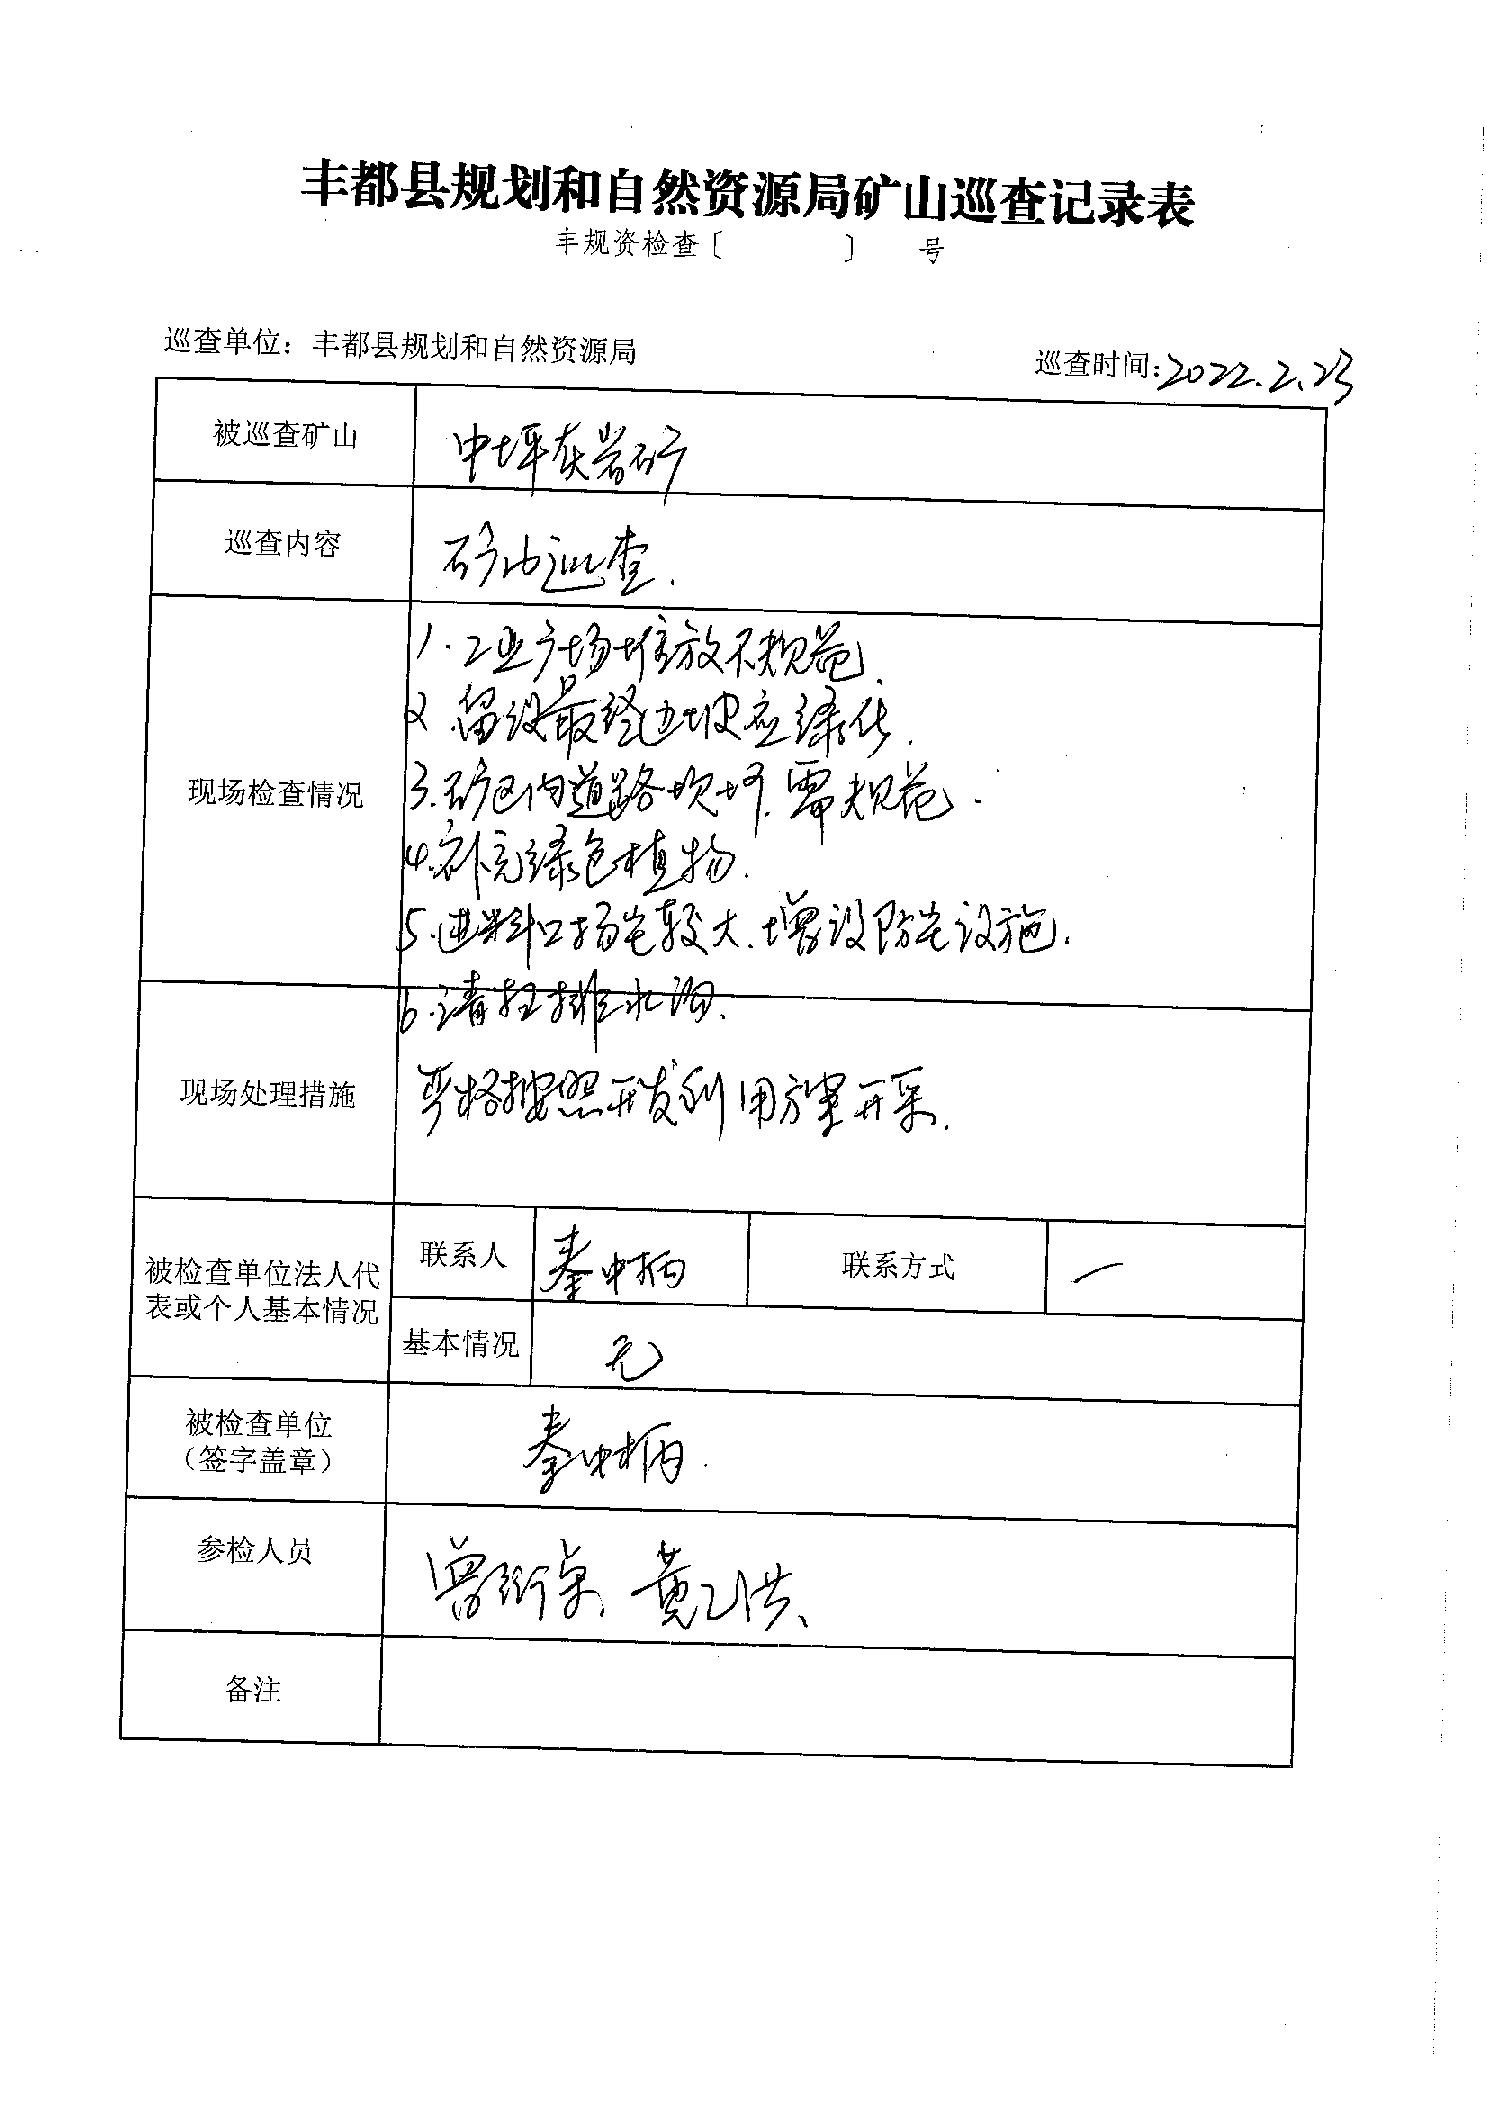 丰都县规划和自然资源局矿山巡查记录表
丰规资检查〔 〕 号
巡查单位：丰都县规划和自然资源局
巡查时间：2022.2.23
被巡查矿山 中坪灰岩矿
巡查内容 矿山巡查.
现场检查情况
1.工业广场堆放不规范.
2.留设最终边坡应绿化.
3.矿区内道路坎坷.需规范.
4.补充绿色植物.
5.进料口扬尘较大.增设防尘设施.
6.清扫排水沟.
现场处理措施 严格按照开发利用方案开采.
被检查单位法人代
表或个人基本情况
联系人 秦中柄 联系方式 一
基本情况 无
被检查单位
（签字盖章） 秦中柄.
参检人员 曾 黄 洪
备注